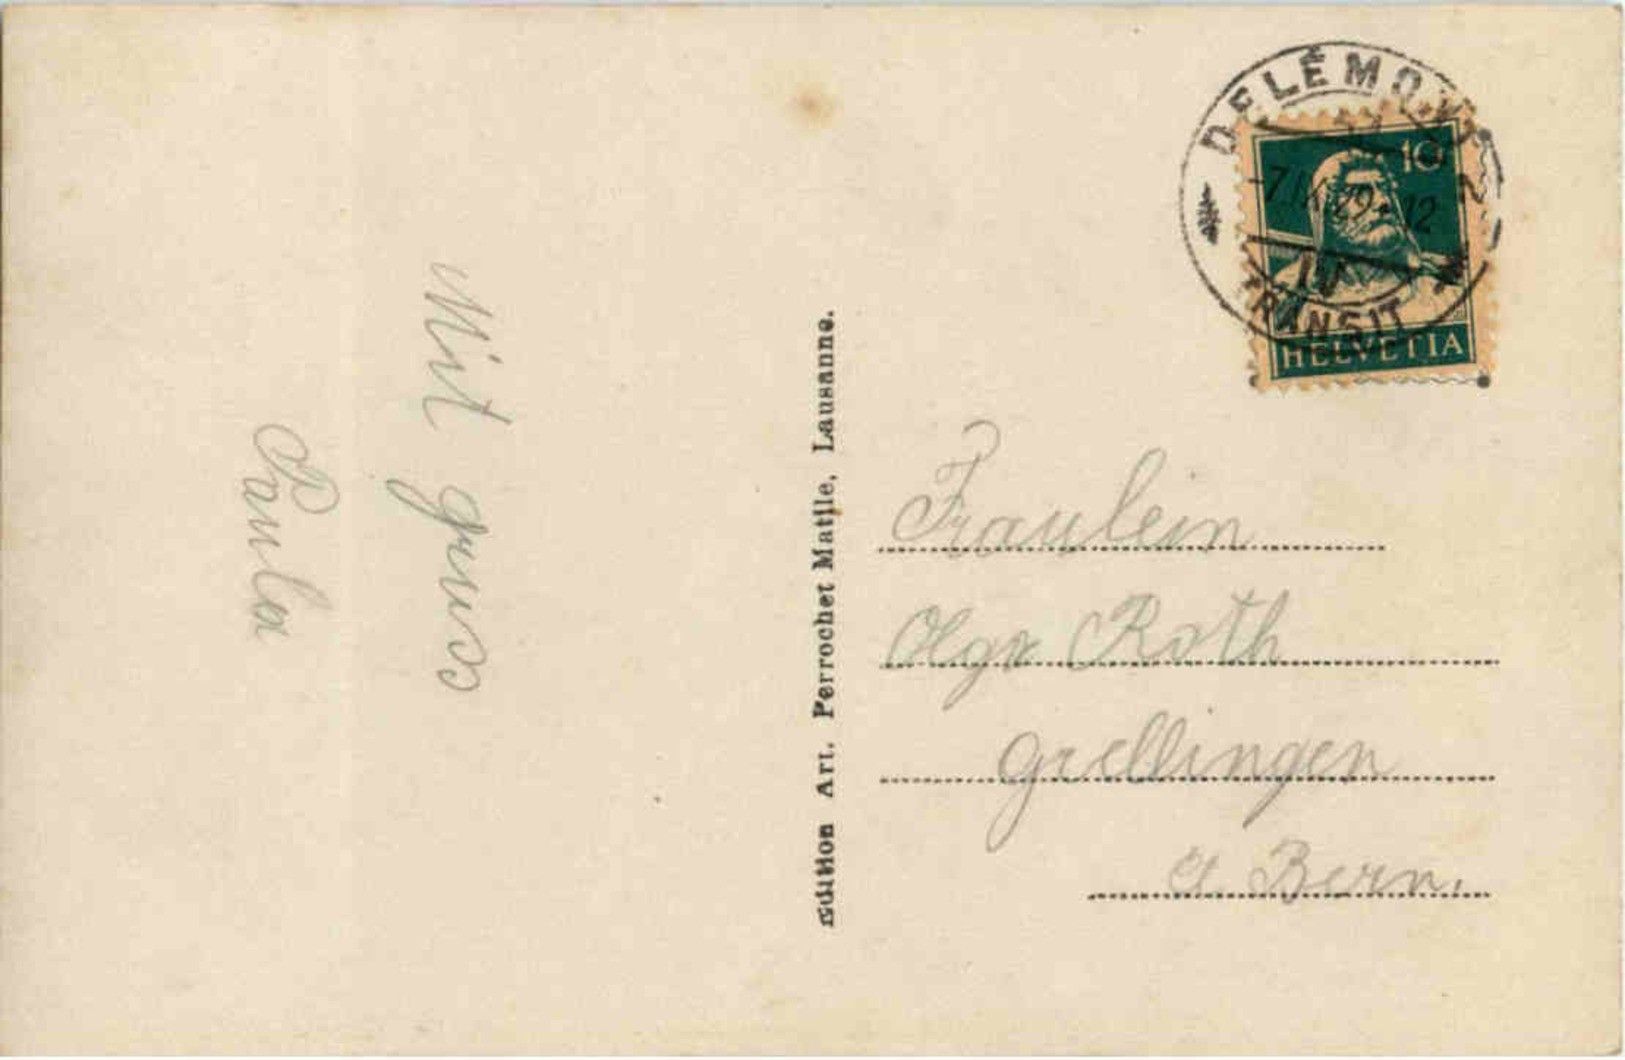 Mit gruss
Paula
Edition Art. Perrochet Matile, Lausanne.
DELÉMONT 2
10
-7.IX.29.-12
IV
TRANSIT
HELVETIA
Fraulein
Olga Roth
Grellingen
Ct. Bern.